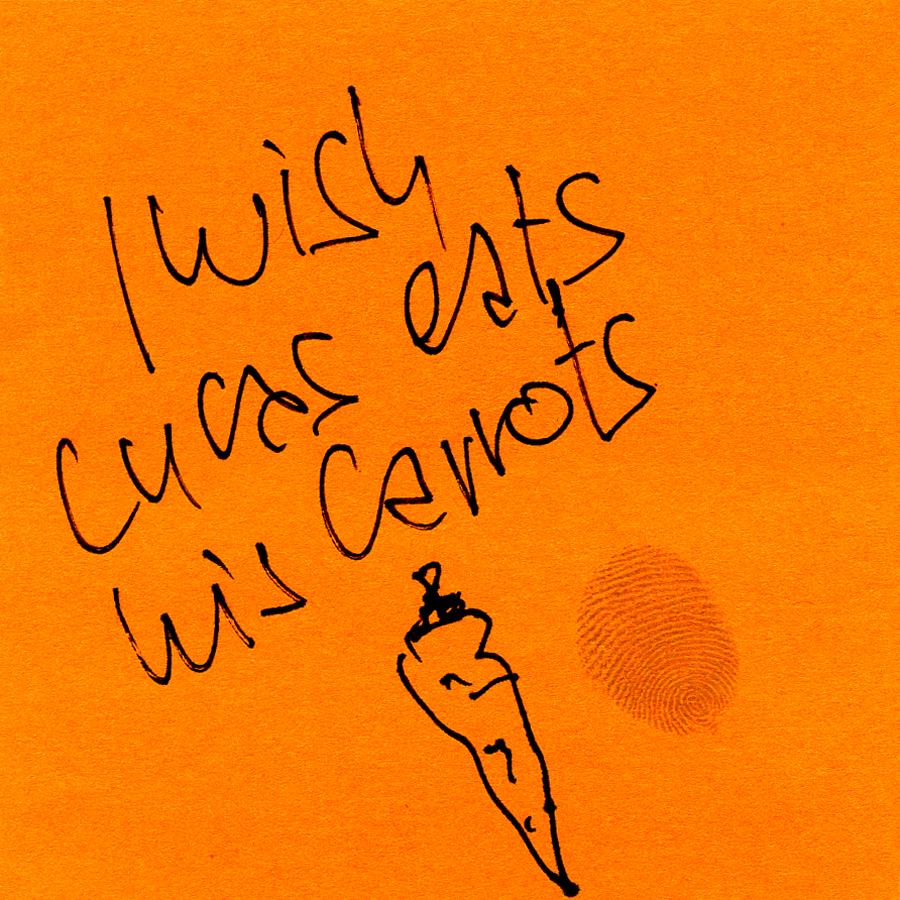 I wish
Lucas eats
his carrots